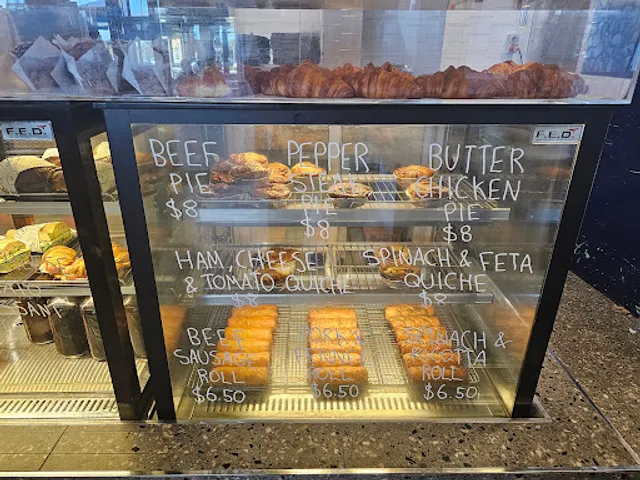 F.E.D.
F.E.D.
BEEF
PIE
$8
PEPPER
STEAK
PIE
$8
BUTTER
CHICKEN
PIE
$8
HAM, CHEESE
& TOMATO QUICHE
$8
SPINACH & FETA
QUICHE
$8
BEEF
SAUSAGE
ROLL
$6.50
PORK &
FENNEL
ROLL
$6.50
SPINACH &
RICOTTA
ROLL
$6.50